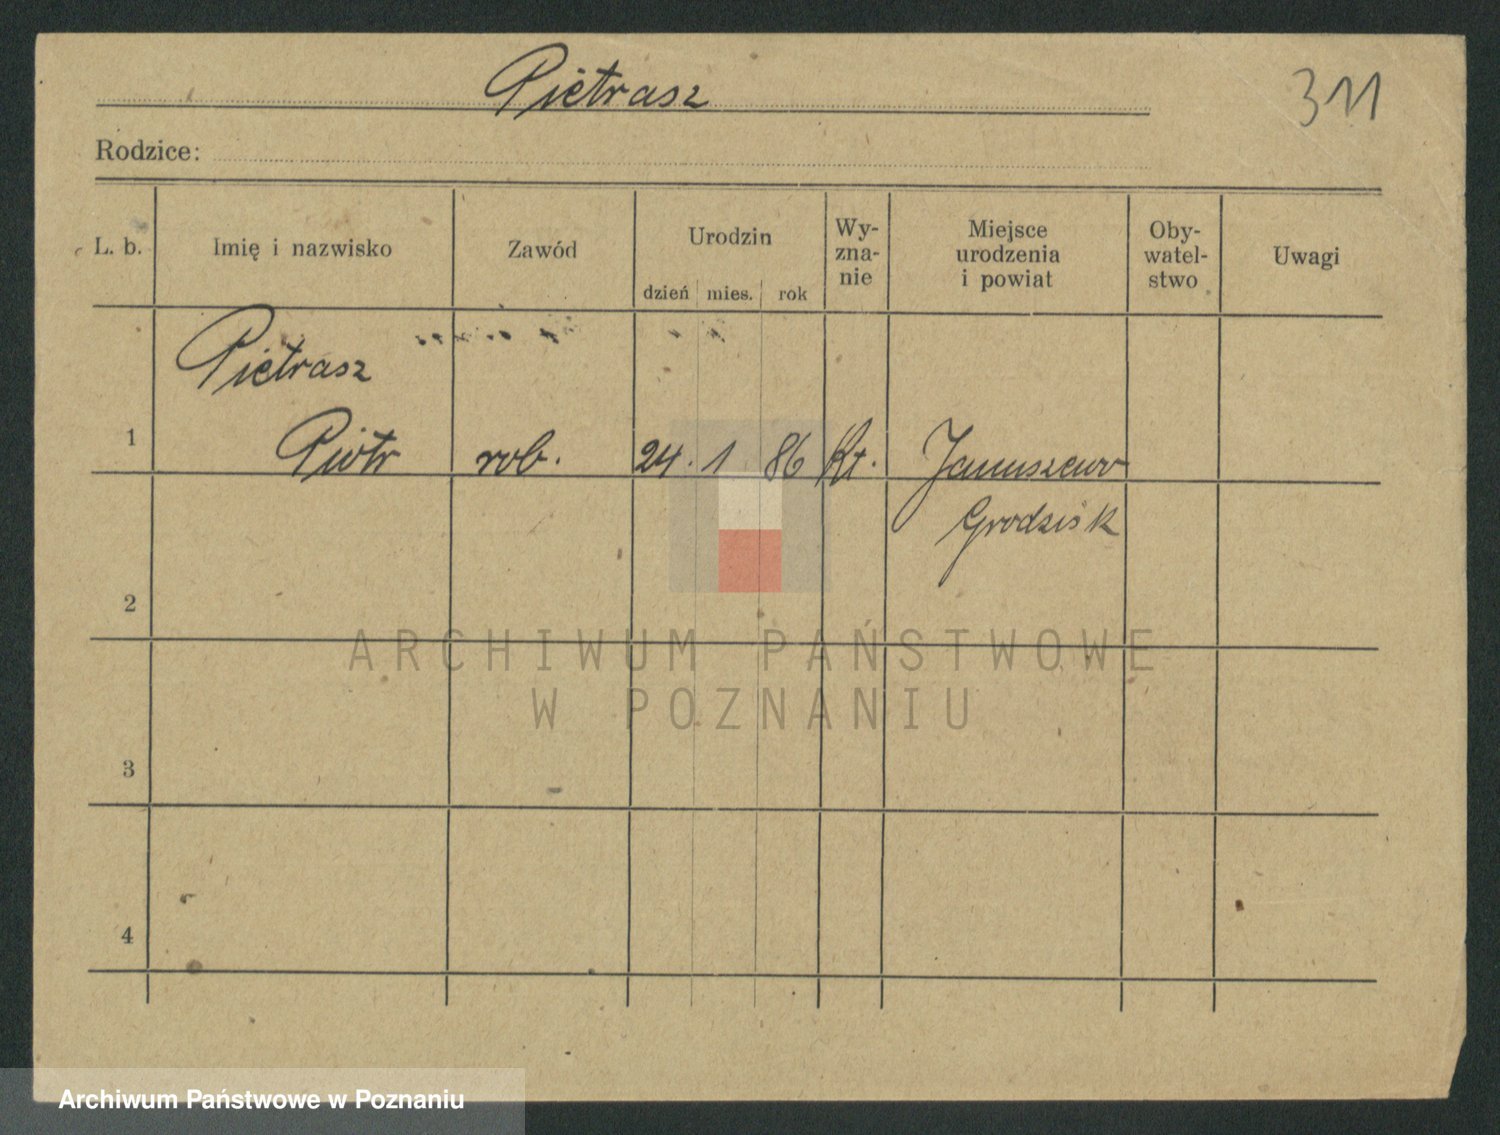 Pietrasz
311
Rodzice:
L. b.
Imię i nazwisko
Zawód
Urodzin
dzień mies. rok
Wy-
zna-
nie
Miejsce
urodzenia
i powiat
Oby-
watel-
stwo
Uwagi
Pietrasz
1 Piotr rob. 24. 1 86 Kt. Januszewo
Grodzisk
2
ARCHIWUM PAŃSTWOWE
W POZNANIU
3
4
Archiwum Państwowe w Poznaniu